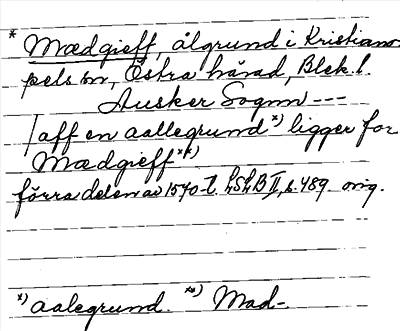 * Mædgieff, ålgrund i Kristiano-
pels sn, Östra härad, Blek. l.
Ausker Sognn ---
/aff en aallegrund *) ligger for
Mædgieff **)
förra delen av 1570-t. LSLB II, s. 489. orig.
*) aalegrund. **) Mad-.